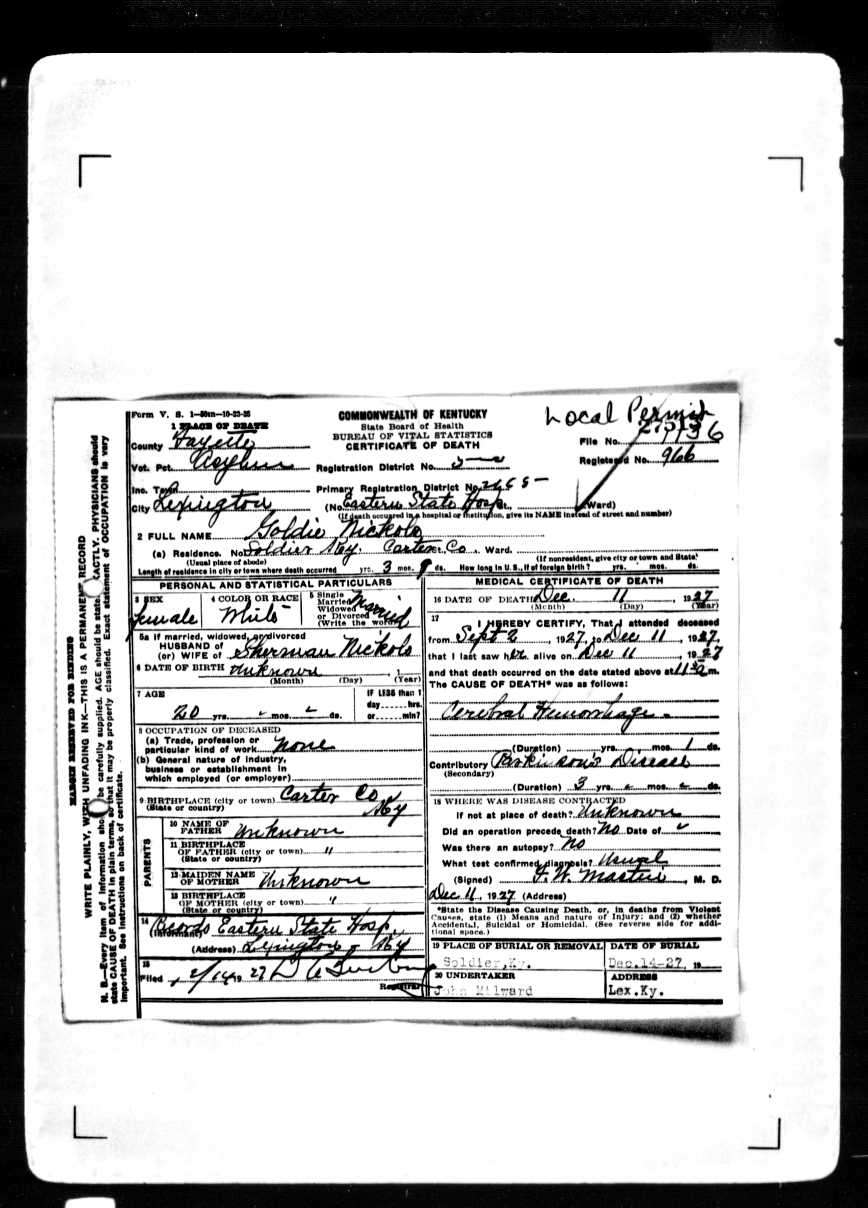 Form V. S. 1—50m—10-23-25
COMMONWEALTH OF KENTUCKY
State Board of Health
BUREAU OF VITAL STATISTICS
CERTIFICATE OF DEATH
Local Permit
File No.
Registered No. 966
1 PLACE OF DEATH
County Fayette
Vot. Pct. Asylum
Registration District No.
Inc. Town
Primary Registration District No.
City Lexington
(No. Eastern State Hosp. St., Ward)
(If death occured in a hospital or institution, give its NAME instead of street and number)
2 FULL NAME Goldie Nickols
(a) Residence. No. Soldier Ky. Carter Co. Ward.
(Usual place of abode)
(If nonresident, give city or town and State)
Length of residence in city or town where death occurred yrs. 3 mos. 9 ds. How long in U. S., if of foreign birth? yrs. mos. ds.
PERSONAL AND STATISTICAL PARTICULARS
3 SEX
female
4 COLOR OR RACE
White
5 Single
Married
Widowed
or Divorced
(Write the word)
Married
5a If married, widowed, or divorced
HUSBAND of
(or) WIFE of Sherman Nickols
6 DATE OF BIRTH Unknown
(Month) (Day) (Year)
7 AGE
20 yrs. mos. ds.
IF LESS than 1
day hrs.
or min?
8 OCCUPATION OF DECEASED
(a) Trade, profession or
particular kind of work None
(b) General nature of industry,
business or establishment in
which employed (or employer)
9 BIRTHPLACE (city or town) Carter Co
(State or country) Ky
PARENTS
10 NAME OF
FATHER Unknown
11 BIRTHPLACE
OF FATHER (city or town) "
(State or country)
12 MAIDEN NAME
OF MOTHER Unknown
13 BIRTHPLACE
OF MOTHER (city or town) "
(State or country)
14 Records Eastern State Hosp.
(Informant)
(Address) Lexington Ky
15
Filed 12/14, 1927
Registrar
MEDICAL CERTIFICATE OF DEATH
16 DATE OF DEATH Dec. 11, 1927
(Month) (Day) (Year)
17
I HEREBY CERTIFY, That I attended deceased
from Sept 2, 1927, to Dec 11, 1927,
that I last saw her alive on Dec 11, 1927
and that death occurred on the date stated above at m.
The CAUSE OF DEATH* was as follows:
Cerebral Hemorrhage.
(Duration) yrs. mos. 1 ds.
Contributory Parkinson's Disease
(Secondary)
(Duration) 3 yrs. mos. ds.
18 WHERE WAS DISEASE CONTRACTED
If not at place of death? Unknown
Did an operation precede death? No Date of
Was there an autopsy? No
What test confirmed diagnosis? Usual
(Signed) , M. D.
Dec 11, 1927 (Address)
*State the Disease Causing Death, or, in deaths from Violent
Causes, state (1) Means and nature of Injury; and (2) whether
Accidental, Suicidal or Homicidal. (See reverse side for addi-
tional space.)
19 PLACE OF BURIAL OR REMOVAL
Soldier, Ky.
DATE OF BURIAL
Dec.14-27, 19
20 UNDERTAKER
John Milward
ADDRESS
Lex.Ky.
MARGIN RESERVED FOR BINDING
WRITE PLAINLY, WITH UNFADING INK—THIS IS A PERMANENT RECORD
N. B.—Every item of information should be carefully supplied. AGE should be stated EXACTLY. PHYSICIANS should
state CAUSE OF DEATH in plain terms, so that it may be properly classified. Exact statement of OCCUPATION is very
important. See instructions on back of certificate.